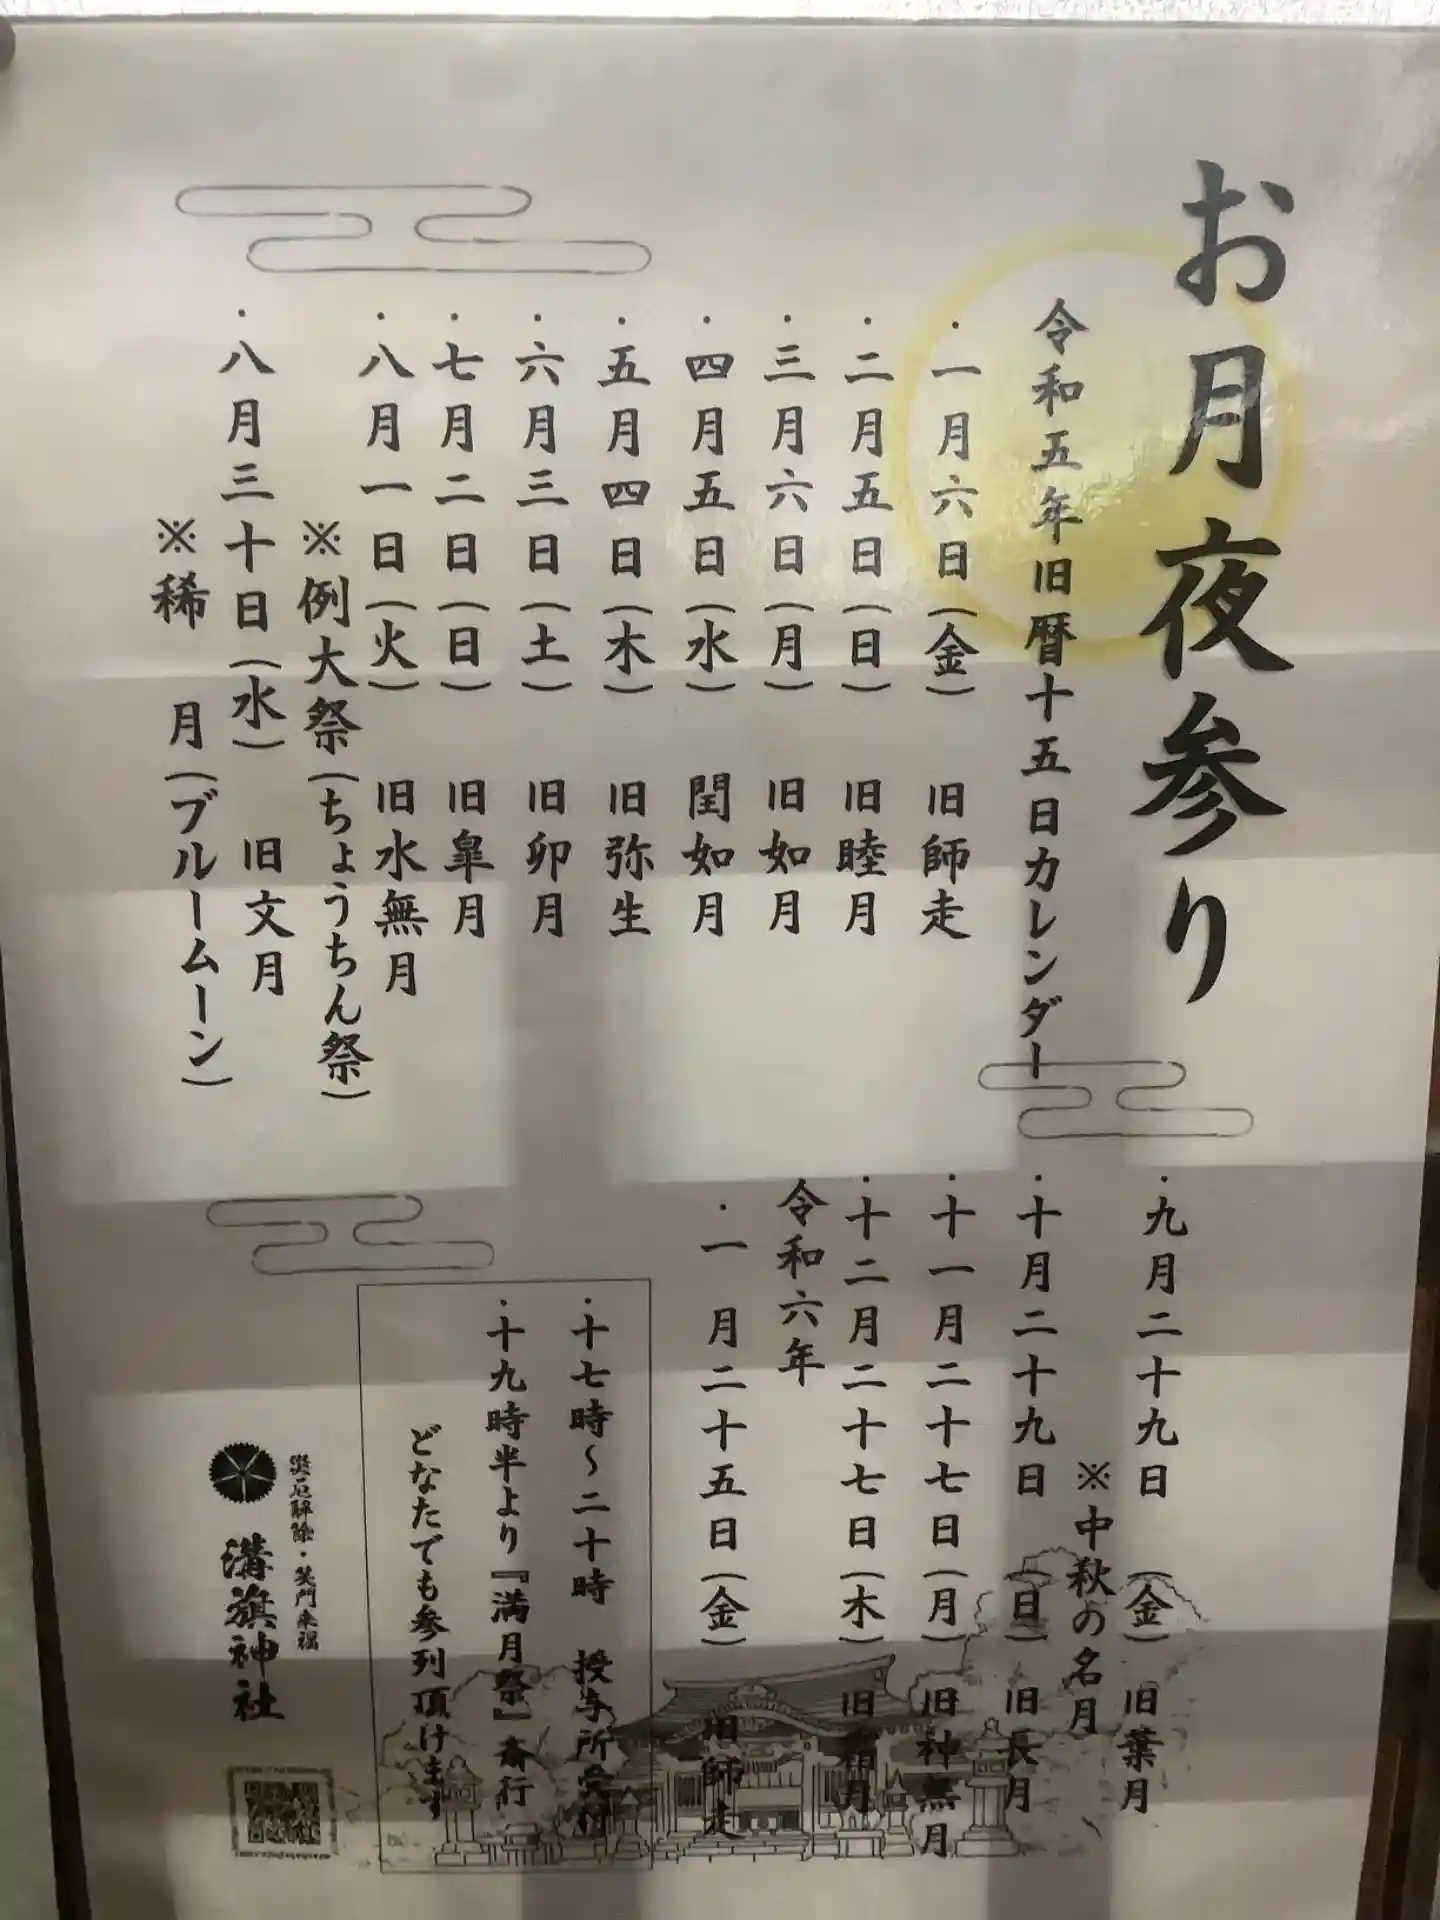 お月夜参り
令和五年旧暦十五日カレンダー
・一月六日(金) 旧師走
・二月五日(日) 旧睦月
・三月六日(月) 旧如月
・四月五日(水) 閏如月
・五月四日(木) 旧弥生
・六月三日(土) 旧卯月
・七月二日(日) 旧皐月
・八月一日(火) 旧水無月
※例大祭(ちょうちん祭)
・八月三十日(水) 旧文月
※稀 月(ブルームーン)
・九月二十九日 (金) 旧葉月
※中秋の名月
・十月二十九日 (日) 旧長月
・十一月二十七日(月) 旧神無月
・十二月二十七日(木) 旧霜月
令和六年
・一 月二十五日(金) 旧師走
・十七時〜二十時 授与所受付
・十九時半より『満月祭』斎行
どなたでも参列頂けます
災厄解除・笑門来福
溝旗神社